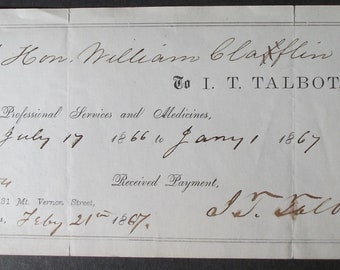 Hon. William Claflin
To I. T. TALBOT
Professional Services and Medicines,
July 17 1866 to Jany 1 1867
Received Payment,
31 Mt. Vernon Street,
Feby 21st 1867. I. T. Talb